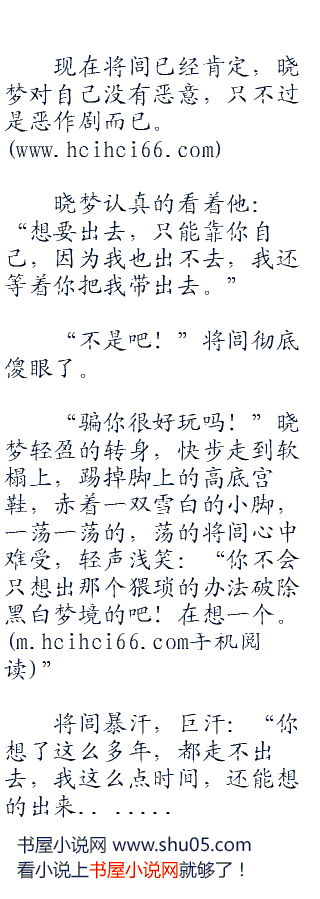 现在将闾已经肯定，晓
梦对自己没有恶意，只不过
是恶作剧而已。
(www.hcihci66.com)
晓梦认真的看着他：
“想要出去，只能靠你自
己，因为我也出不去，我还
等着你把我带出去。”
“不是吧！”将闾彻底
傻眼了。
“骗你很好玩吗！”晓
梦轻盈的转身，快步走到软
榻上，踢掉脚上的高底宫
鞋，赤着一双雪白的小脚，
一荡一荡的，荡的将闾心中
难受，轻声浅笑：“你不会
只想出那个猥琐的办法破除
黑白梦境的吧！在想一个。
(m.hcihci66.com手机阅
读)”
将闾暴汗，巨汗：“你
想了这么多年，都走不出
去，我这么点时间，还能想
的出来.. .....
书屋小说网 www.shu05.com
看小说上书屋小说网就够了！